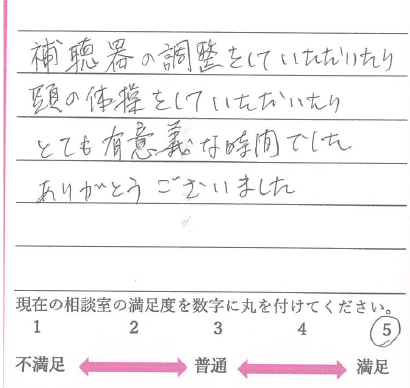 補聴器の調整をしていただいたり
頭の体操をしていただいたり
とても有意義な時間でした
ありがとうございました
現在の相談室の満足度を数字に丸を付けてください。
1 2 3 4 5
不満足 普通 満足